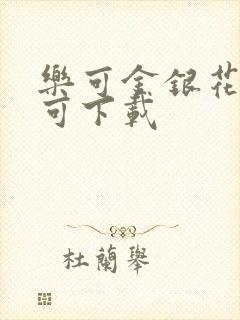 樂可金銀花
可下載
杜蘭舉